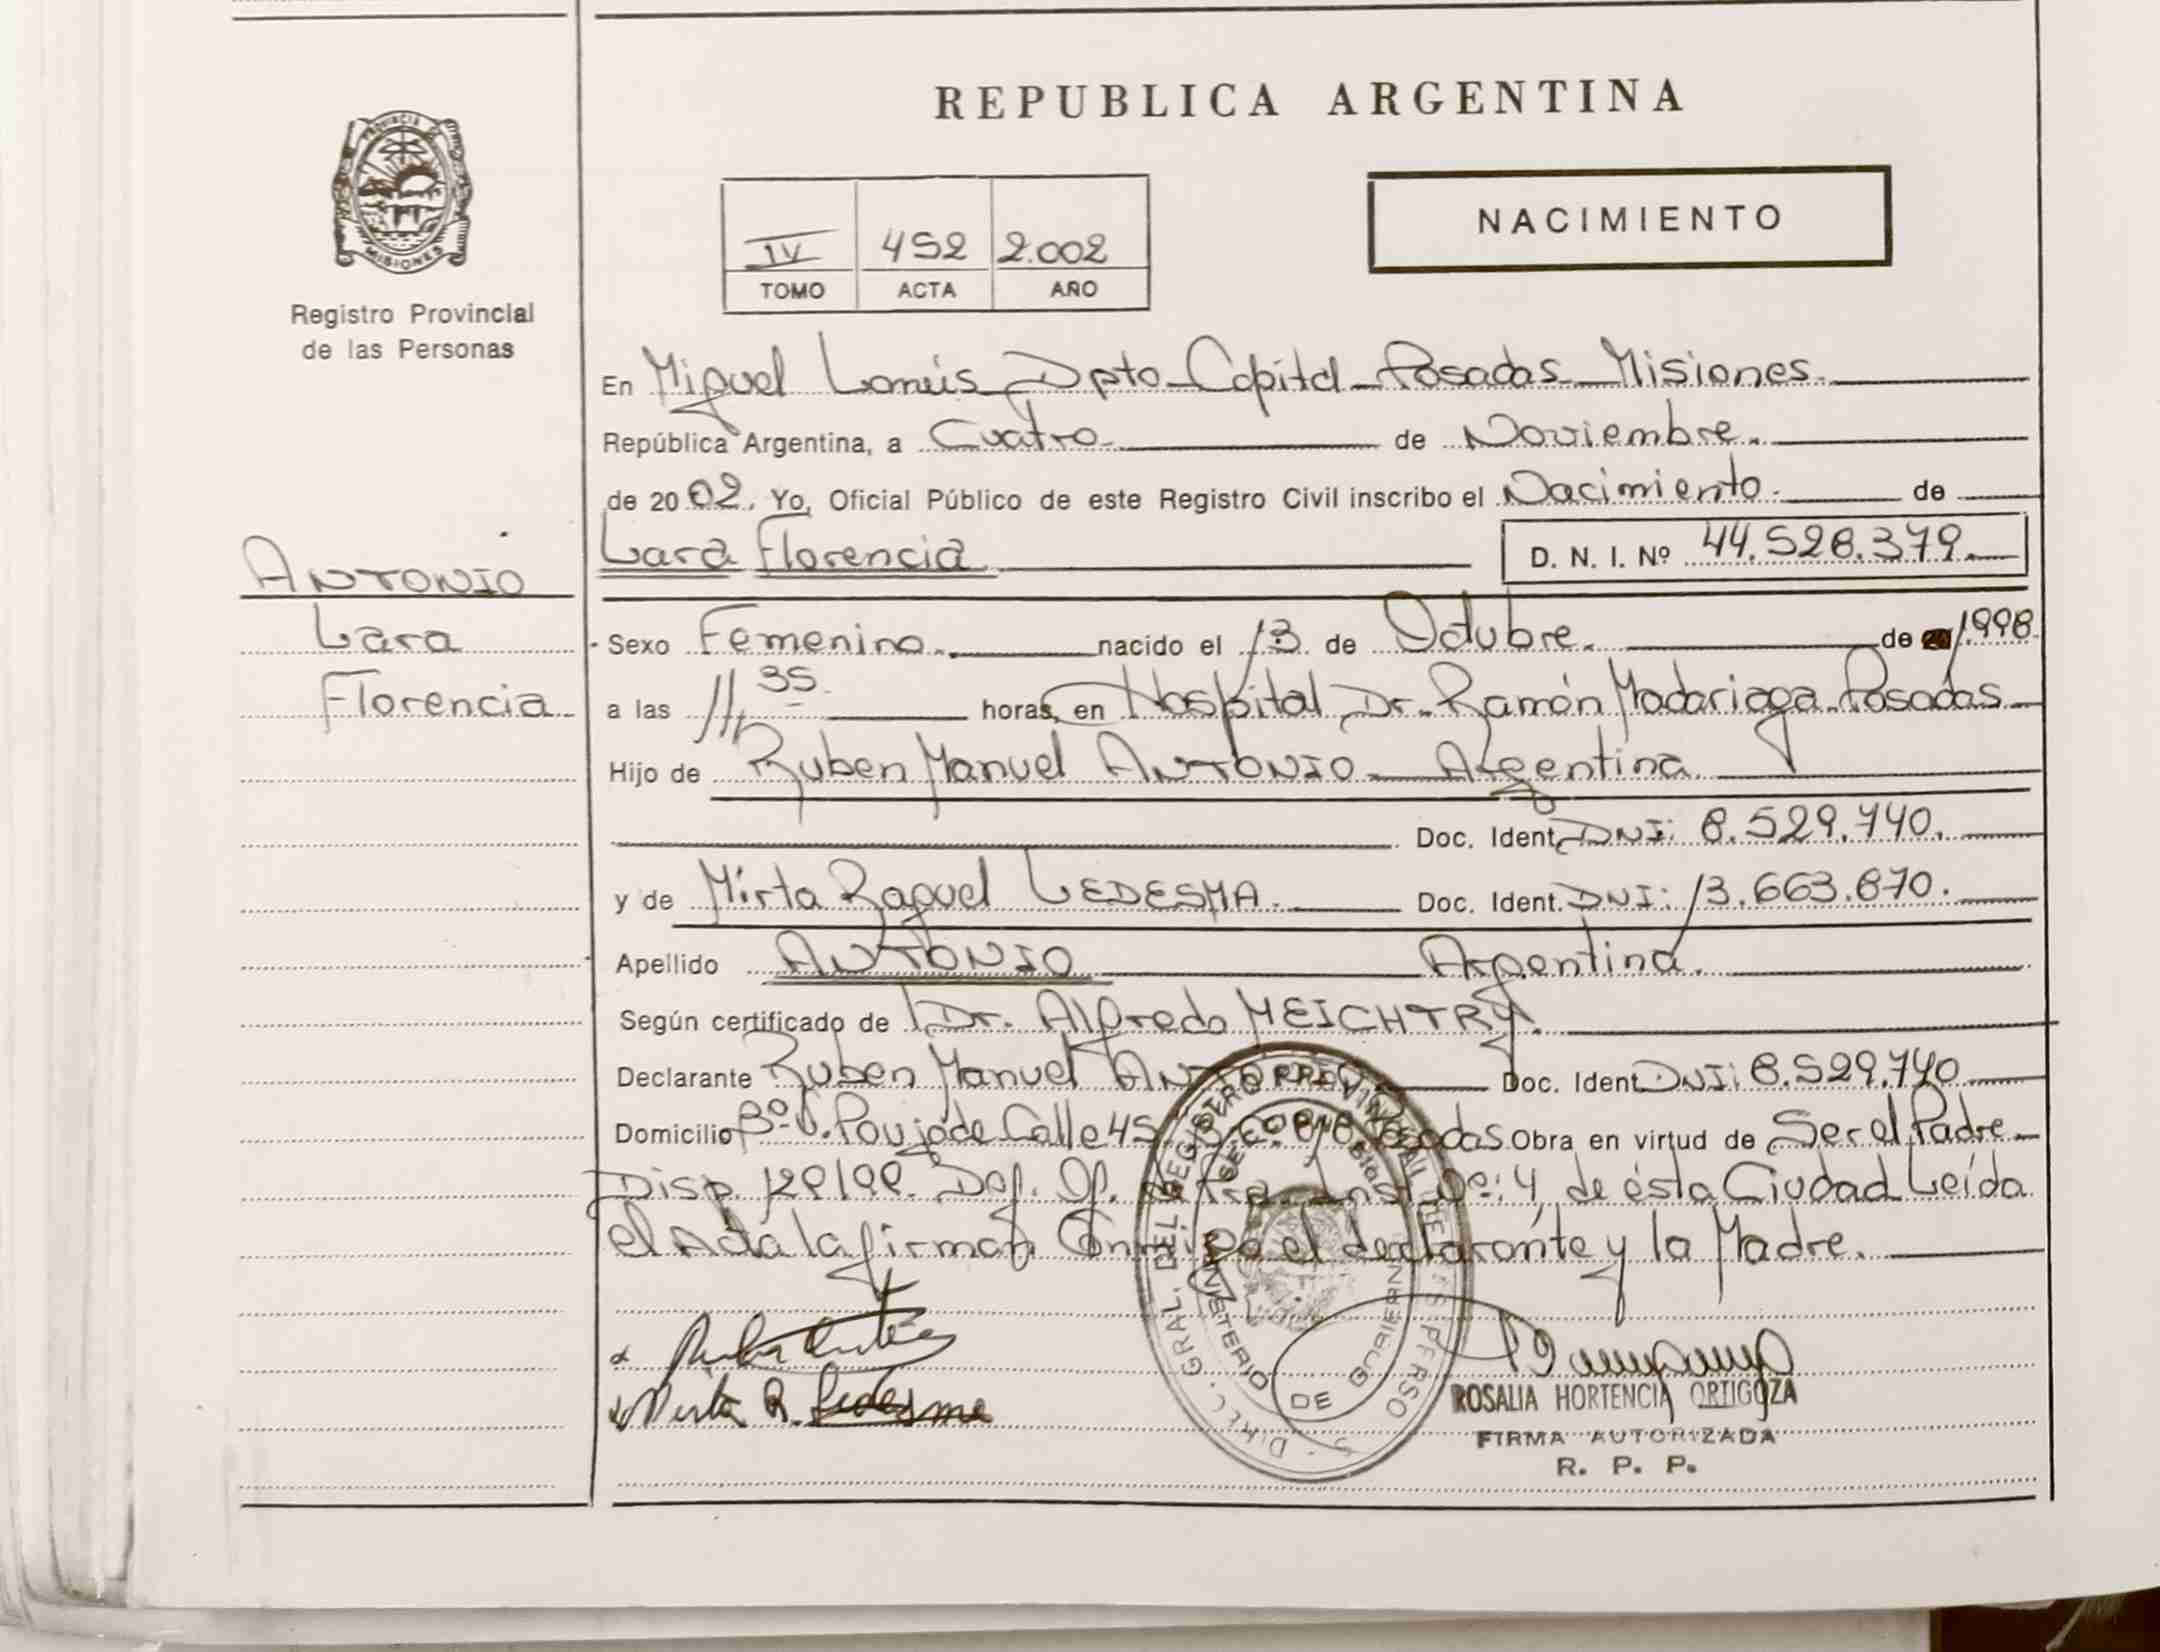 REPUBLICA ARGENTINA
PROVINCIA DE
MISIONES
Registro Provincial
de las Personas
NACIMIENTO
IV 452 2.002
TOMO ACTA AÑO
En Miguel Lanús Dpto Capital Posadas Misiones
República Argentina, a Cuatro de Noviembre.
de 2002. Yo, Oficial Público de este Registro Civil inscribo el Nacimiento de
Lara Florencia D. N. I. Nº 44.528.379.
ANTONIO
Lara
Florencia
Sexo Femenino. nacido el 13 de Octubre. de 1998.
a las 11,35 horas, en Hospital Dr. Ramón Madariaga Posadas
Hijo de Ruben Manuel ANTONIO Argentina
Doc. Ident. DNI: 8.529.740.
y de Mirta Raquel LEDESMA. Doc. Ident. DNI: 13.663.870.
Apellido ANTONIO Argentina.
Según certificado de Dr. Alfredo MEICHTRY.
Declarante Ruben Manuel Doc. Ident. DNI: 8.529.740
Domicilio Bº Calle 45 Posadas Obra en virtud de Ser el Padre
Disp. Def. Of. Inst. Nº: 4 de ésta Ciudad Leída
el Acta la firman Conmigo el declarante y la Madre.
Mirta R. Ledesma
ROSALIA HORTENCIA ORTIGOZA
FIRMA AUTORIZADA
R. P. P.
MINISTERIO DE GOBIERNO